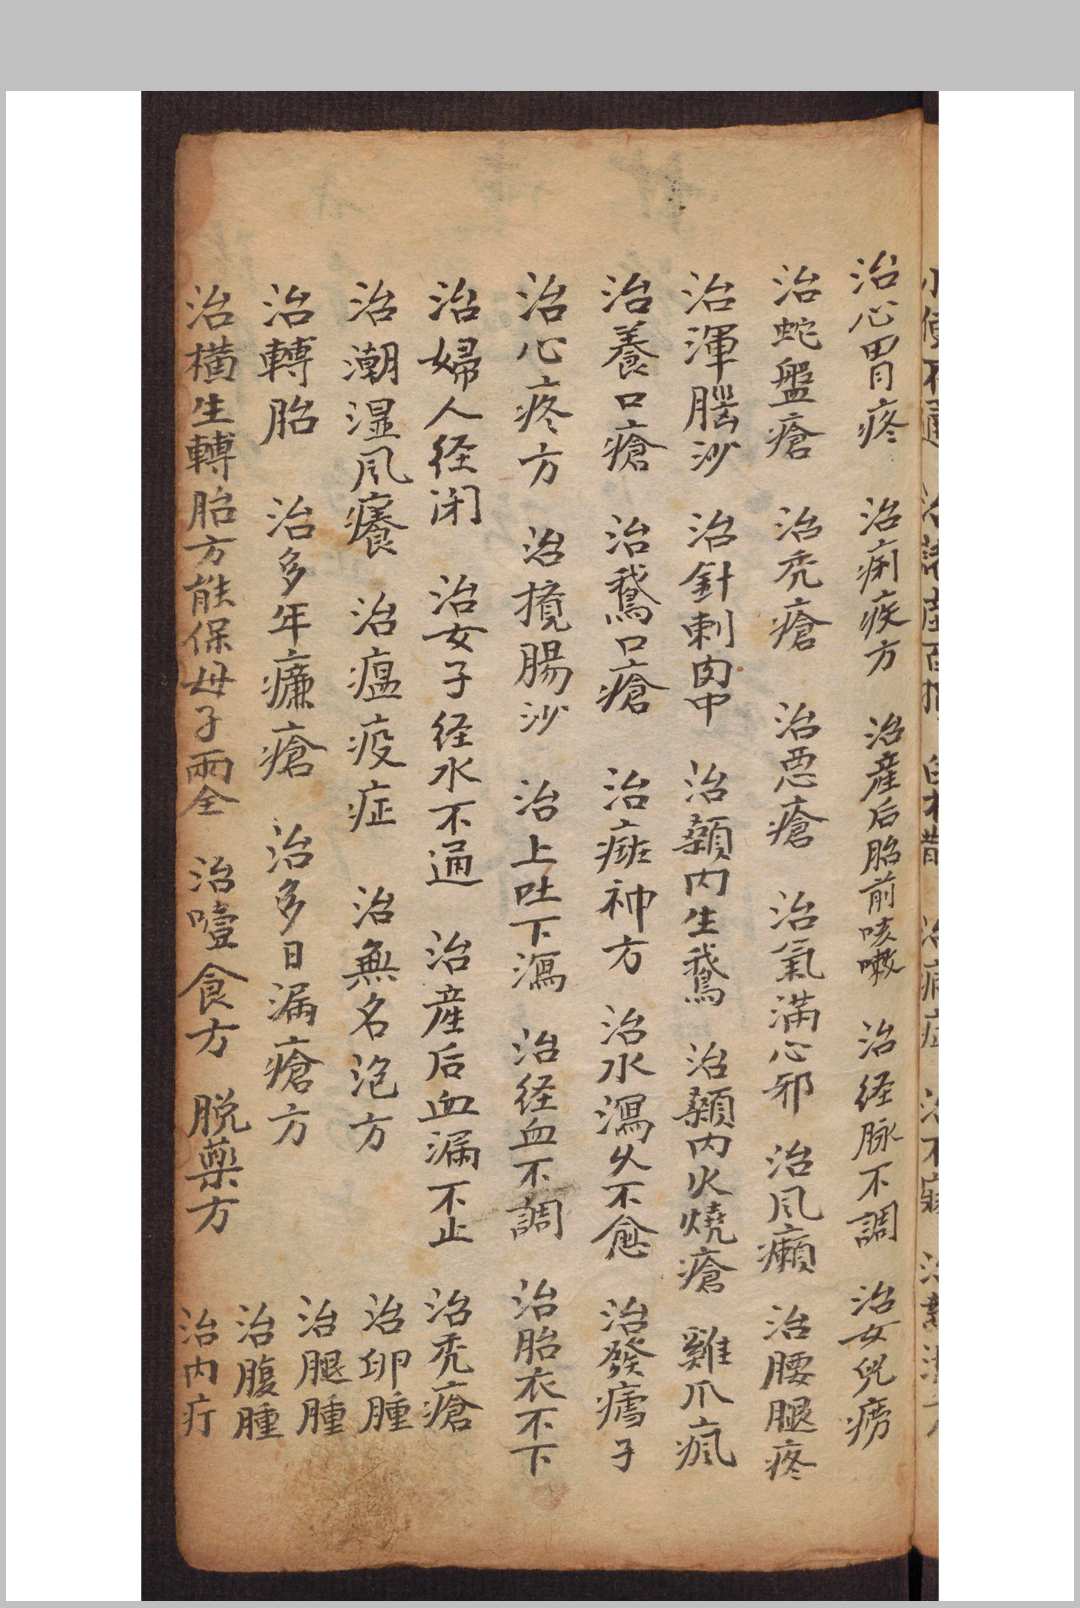 治心胃疼 治痢疾方 治産后胎前咳嗽 治経脉不調 治女兒癆
治蛇盤瘡 治禿瘡 治惡瘡 治氣滿心邪 治风癩 治腰腿疼
治渾腦沙 治針刺肉中 治顙内生鵞 治顙内火燒瘡 雞爪瘋
治養口瘡 治鵞口瘡 治痣神方 治水瀉久不愈 治發瘧子
治心疼方 治攪腸沙 治上吐下瀉 治経血不調 治胎衣不下
治婦人経闭 治女子経水不通 治産后血漏不止 治禿瘡
治潮湿风癢 治瘟疫症 治無名泡方 治卵腫
治轉胎 治多年臁瘡 治多日漏瘡方 治腿腫
治腹腫
治橫生轉胎方能保母子兩全 治噎食方 脱藥方 治内疔